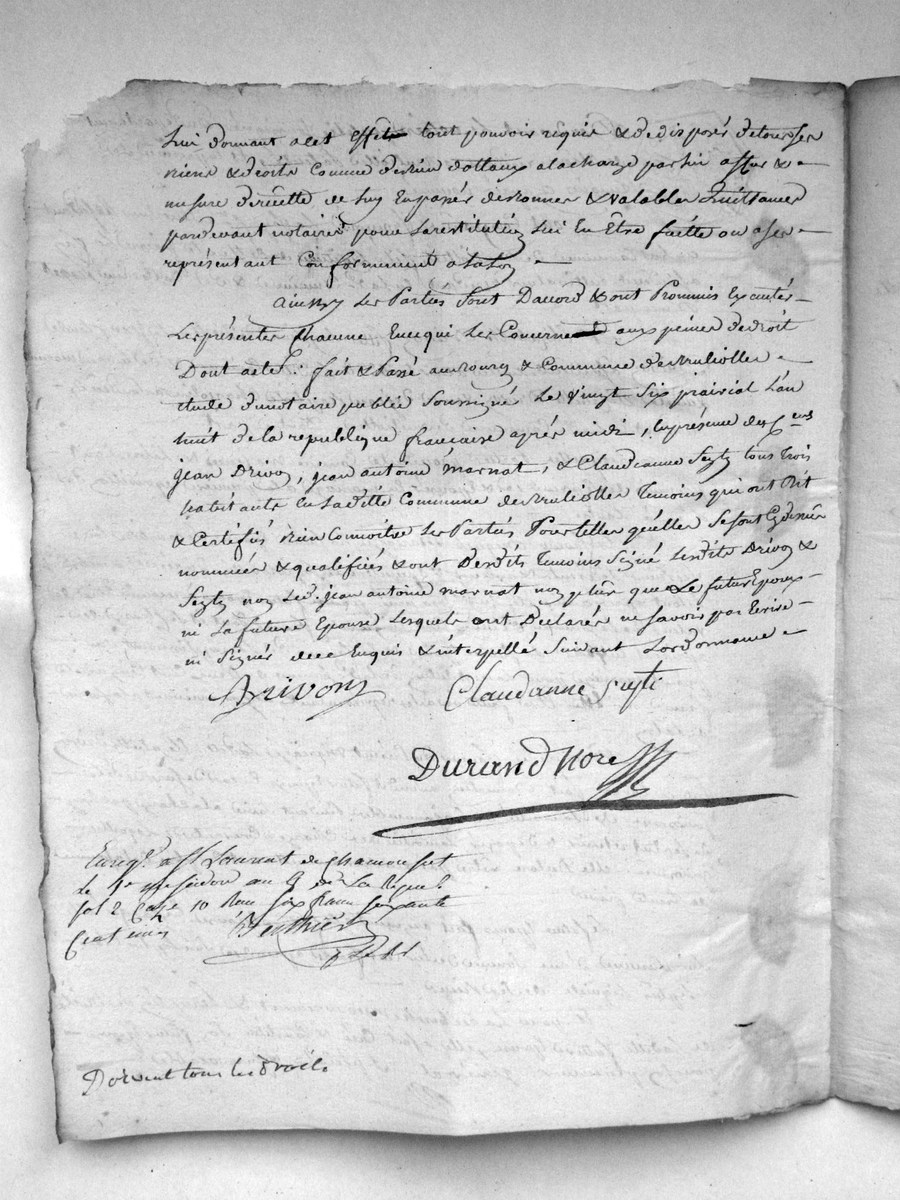 Lui donnant a cet Effêt tout pouvoir requis & de disposér de tous ses
biens & droits Comme de bien dottaux a la charge par lui assur &
mesure de récette de luy En passér des bonnes & Valables Quittances
pardevant notaire pour la restitution lui En Être faitte ou a ses
représentant Conformément a la Loy
ainssy les Parties sont Daccord & ont Prommis Exécutér
Les présentes Chacune En ce qui Les Concerne aux peines de droit
Dont acte. fait & Passé au bourg & Commune de Brulliolles
Etude du notaire publiq Soussigné Le Vingt Six prairial L'an
huit de la republique francaise aprés midi, En présence des Cens
jean Drivon, jean antoine marnat, & Claudeanne Sezty tous trois
habitants En Laditte Commune de Brulliolles Temoins qui ont Dit
& Certifiés bien Connoître les Parties Pour telles qu'elles Se sont Cy dessus
nommées & qualifiés & ont Desdits Temoins Signé lesdits Drivon &
Sezty non led. jean antoine marnat non plus que Le futur Epoux
ni La future Epouse Lesquels ont Déclarés ne Savoir pas Ecrire
ni Signér de ce Enquis & interpellé Suivant Lordonnance
Drivon Claudanne
Durand Nore
Enregé a St Laurent de Chamousset
le 1er messidor an 8 de La Répub
fol 2 Case 10 Reçu six francs soixante
Centimes Berthier
Doivent tous les droits